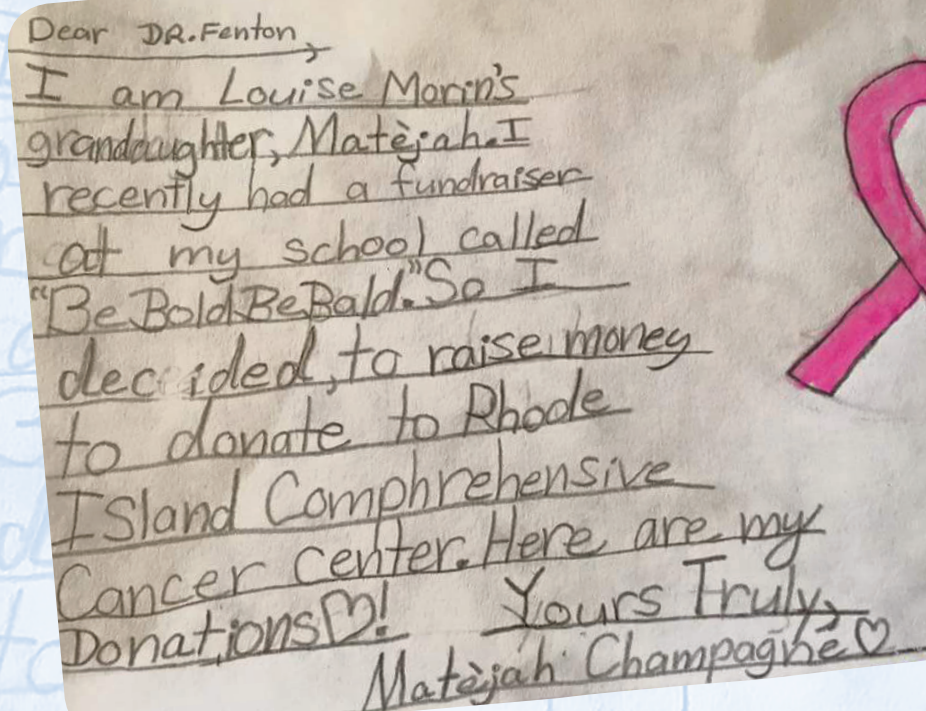 Dear DR. Fenton,
I am Louise Morin's
granddaughter, Matèjah. I
recently had a fundraiser
at my school called
"Be Bold Be Bald." So I
decided, to raise money
to donate to Rhode
ISland Comphrehensive
Cancer Center. Here are my
Donations♡! Yours Truly,
Matèjah Champagne♡